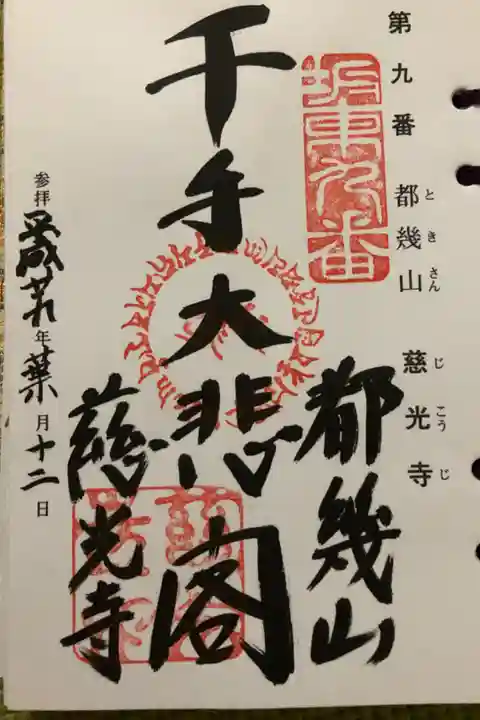 第九番 都幾山 慈光寺
とき さん じ こう じ
坂東九番
都幾山
千手大悲閣
慈光寺
参拝 平成廿九年葉月十二日